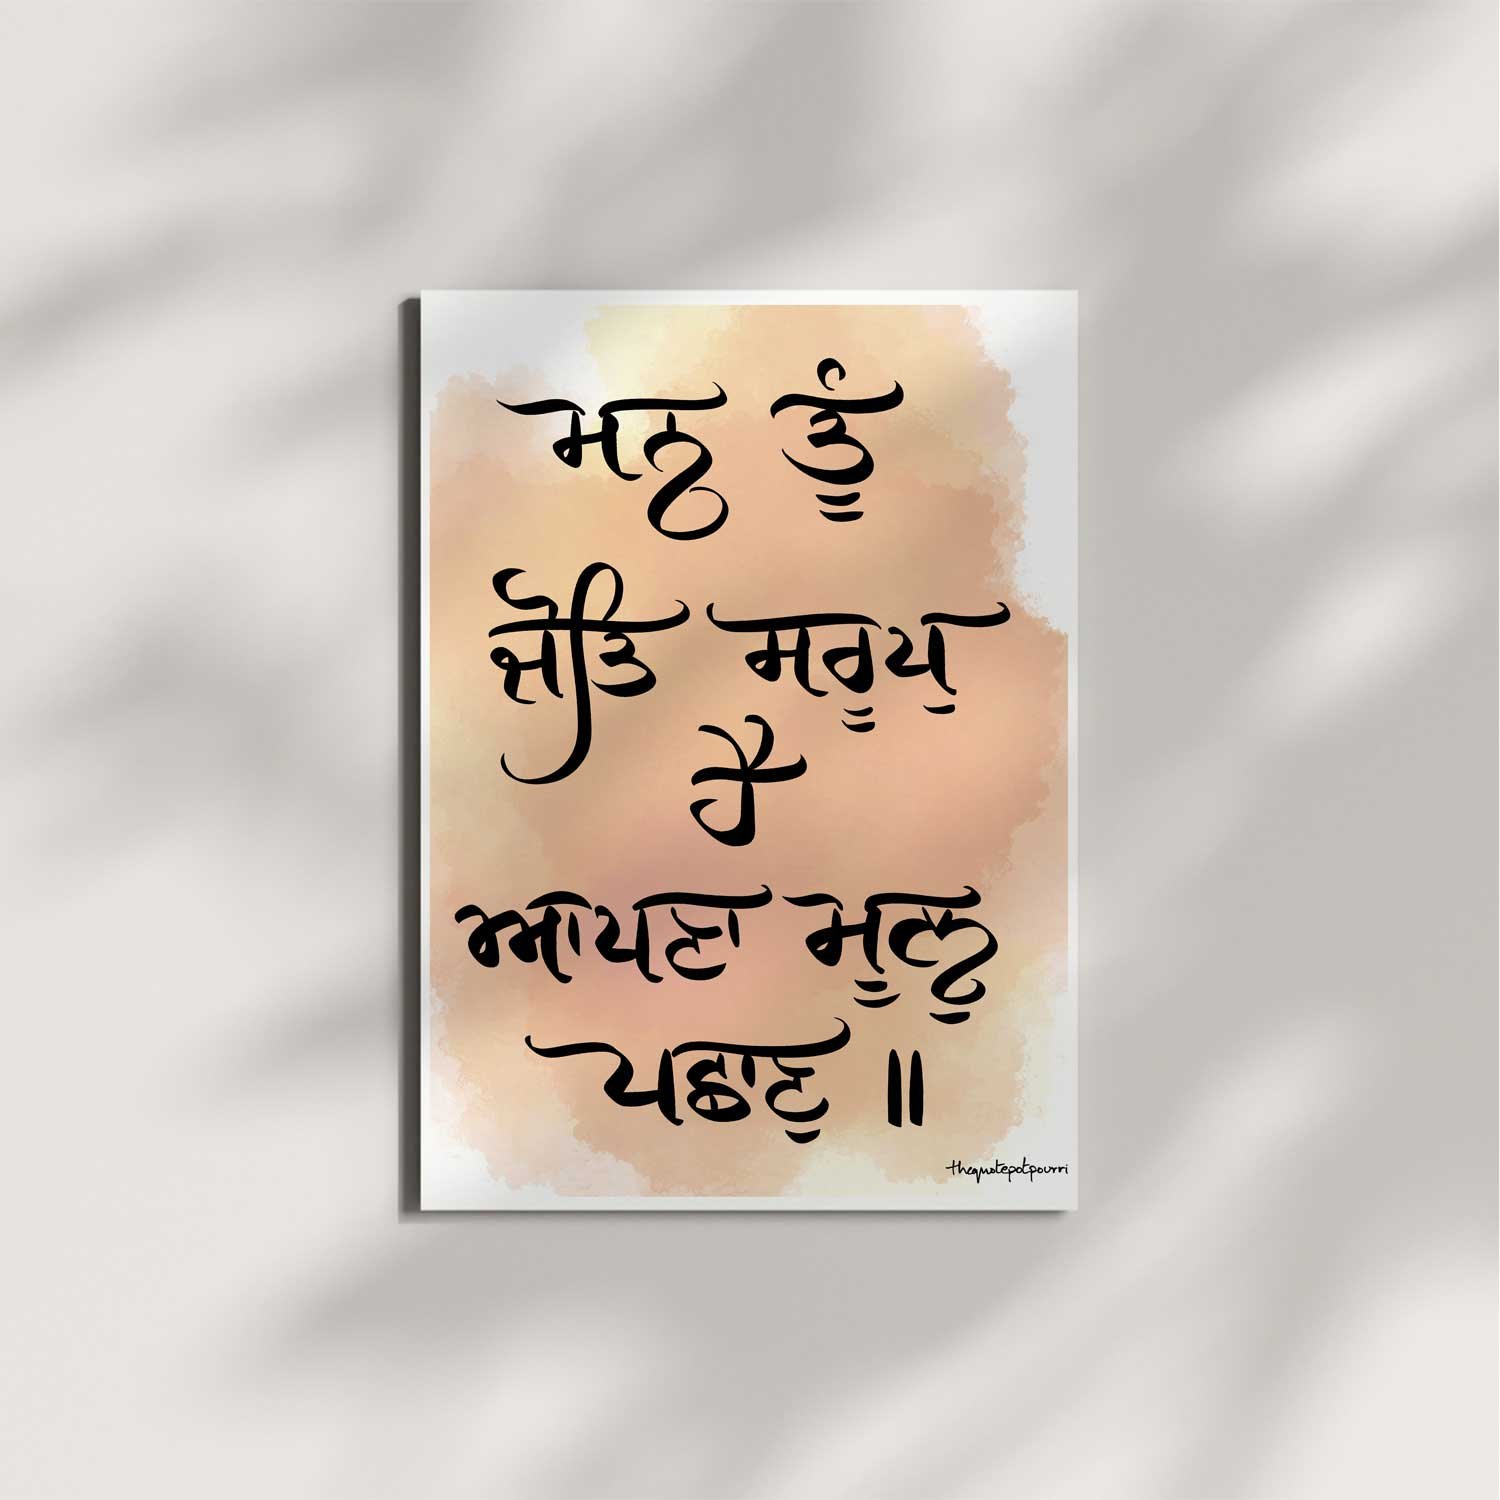 ਮਨੁ ਤੂੰ
ਜੋਤਿ ਸਰੂਪੁ
ਹੈ
ਆਪਣਾ ਮੂਲੁ
ਪਛਾਣੁ ॥
thequotepotpourri